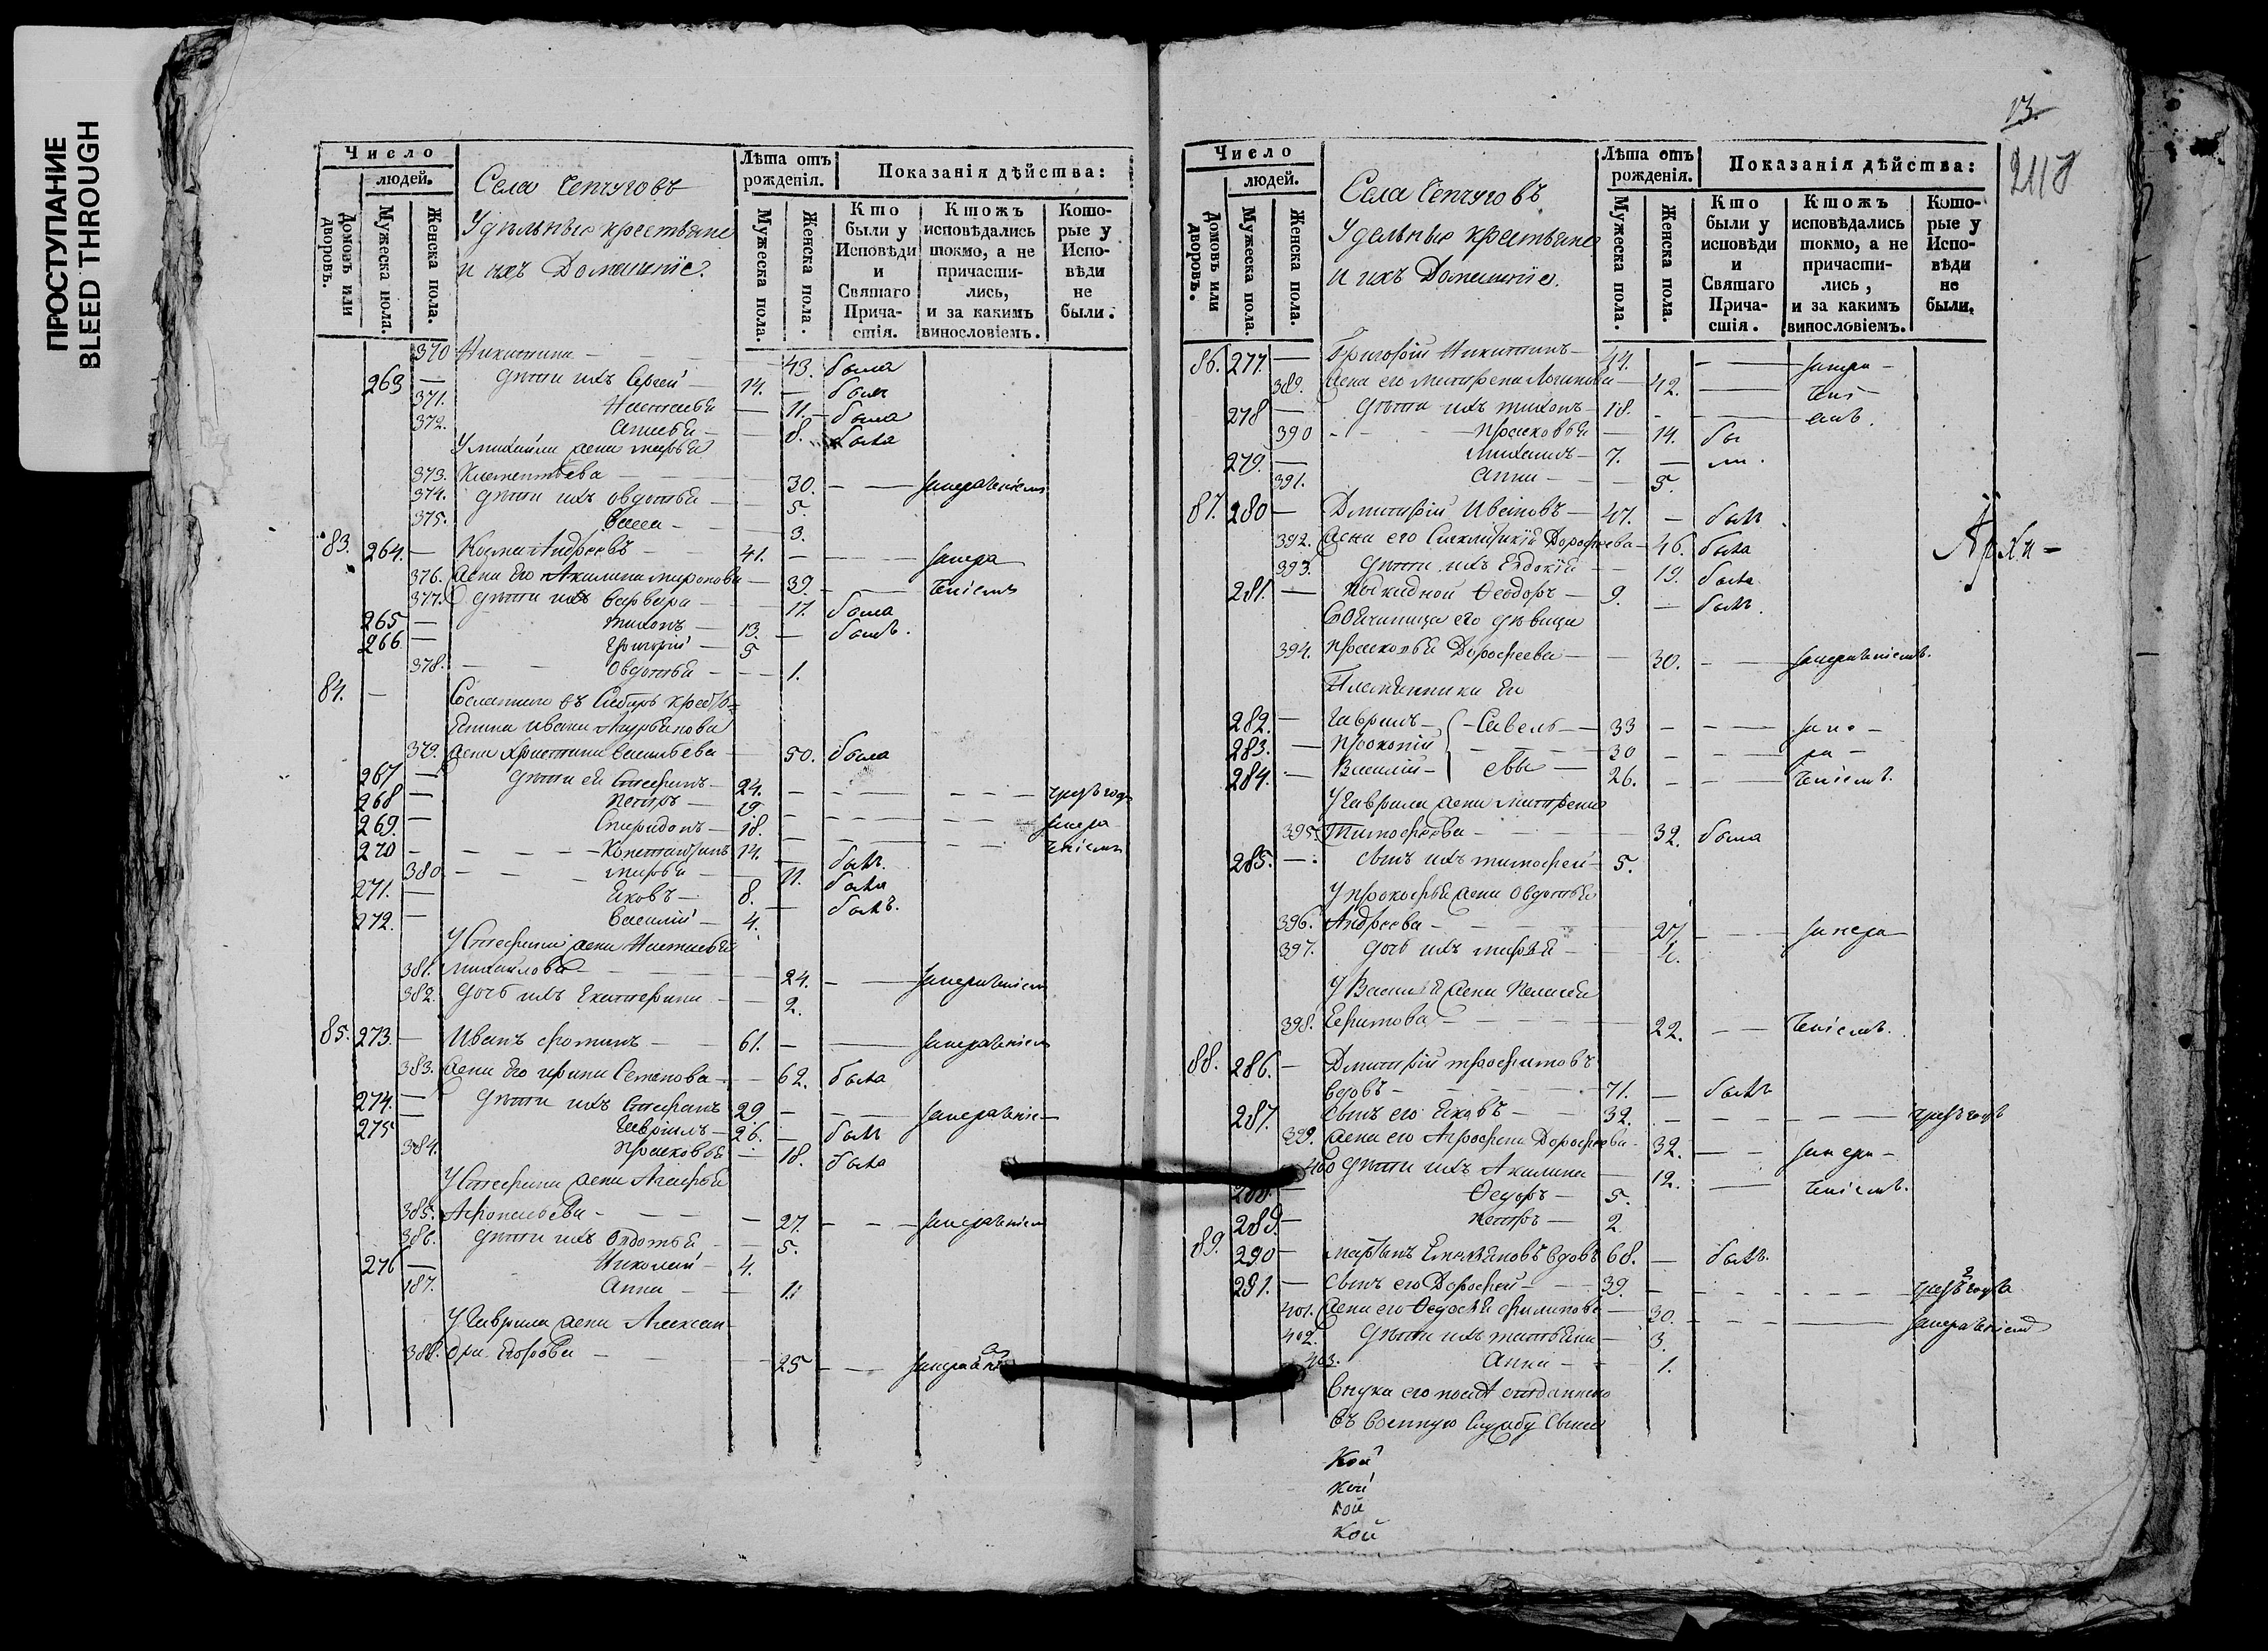 ПРОСТУПАНИЕ
BLEED THROUGH
Число
людей.
Домовъ или дворовъ.
Мужеска пола.
Женска пола.
Села Чепчуговъ
Удѣльные крестьяне
и ихъ Домашніе.
Лѣта отъ рожденія.
Мужеска пола.
Женска пола.
Показанія дѣйства:
Кто были у Исповѣди и Святаго Причастія.
Ктожъ исповѣдались токмо, а не причастились, и за какимъ винословіемъ.
Которые у Исповѣди не были.
370 Никитина — 43. была
263 — дѣти ихъ Сергей — 14. — былъ
371. Настасья — 11. — была
372. — 8. была
У Михайли жена Марья
373. Клементьева — 30. — — запрещеніем
374. дѣти ихъ Овдотья — 5.
375. — 3.
83. 264. — Козма Андреевъ — 41. — — запре
376. жена Его Акилина Миронова — 39. — щеніемъ
377. дѣти ихъ Варвара — 17. была
265 — Тихонъ — 13. — былъ.
266 — Григорій — 5
378. — — Овдотья — 1.
84. — Сосланнаго въ Сибирь крестья=
нина Ивана
379. жена Христина Васильева — 50. была
267 — дѣти ей Стефанъ — 24. — — — чрезъ годъ
268 — Петръ — 19. — — —
269. — Спиридонъ — 18. — — — запре
270 — — Констант 14. — былъ щеніемъ
380. — — Марья — 11. была
271. — Яковъ — 8. — былъ.
272. — Василій — 4.
У Стефана жена Настасья
381. Михайлова — 24. — — запрещеніем
382. дочь ихъ Екатерина — 2.
85. 273. — Иванъ Фоминъ — 61. — — запрещеніем
383. жена Его Ирина Семенова — 62. была
274. — дѣти ихъ Стефанъ 29 — — запрещеніе—
275 — Гаврилъ — 26. — былъ
384. Прасковья — 18. была
У Стефана жена Агафья
385. — 27. — — запрещеніем
386. дѣти ихъ Овдотья — 5.
276 — Николай — 4.
187. Анна — 1.
У Гаврила жена Алексан-
388. дра Егорова — 25 — —
13.
2118
Число
людей.
Домовъ или дворовъ.
Мужеска пола.
Женска пола.
Села Чепчуговъ
Удельные крестьяне
и ихъ Домашніе.
Лѣта отъ рожденія.
Мужеска пола.
Женска пола.
Показанія дѣйства:
Кто были у исповѣди и Святаго Причастія.
Ктожъ исповѣдались токмо, а не причастились, и за какимъ винословіемъ.
Которые у Исповѣди не были.
86. 277. — Григорій Никитинъ — 44. — запре—
389. жена его Матрена Логинова — 42. — щені—
278 — дѣти ихъ Тихонъ — 18. — — емъ.
390 — — Прасковья — 14. бы
279. — Михаилъ — 7. — ли.
391. Анна — 5.
87. 280 — Дмитрій Ивановъ — 47. — былъ
392. жена его Дорофеева — 46. была
393. дѣти ихъ Евдокія — 19. была
281. — Подкидной Ѳеодоръ — 9. — былъ.
Своячиница его дѣвица
394. Прасковья Дорофеева — 30. — — запрещеніемъ.
Племянники Ея
282. — Гаврилъ — Савель — 33 — — запе—
283. — Прокопій — 30 — — ре—
284. — Василій — евы — 26. — — щеніемъ.
У Гаврила жена Матрена
395. Тимофеева — 32. была
285. — сынъ ихъ Тимофей — 5.
У Прокофья жена Овдотья
396. Андреева — 27. — запре
397. дочь ихъ Марья — 4.
У Василья жена Пелагея
398. Ефимова — 22. — — щеніемъ.
88. 286. — Дмитрій Трофимовъ
вдовъ — 71. — былъ
287. сынъ его Яковъ — 32. — — — чрезъ годъ
399. жена его Агрофена Дорофеева — 32. — — запре—
400 дѣти ихъ Акилина — 12. — щеніемъ.
288. — Ѳедоръ — 5.
289. — Петръ — 2.
89. 290 — Мартынъ Емельяновъ вдовъ 68. — былъ
291. — сынъ его Дорофей — 39. — — — чрезъ 2 года
401. жена его Ѳедосья Филипова — 30. — — запрещеніемъ
402. дѣти ихъ Татьяна — 3.
403. Анна — 1.
внука его послѣ отданнаго
въ военную службу сына
Кой
кой
кой
кой
Архи-